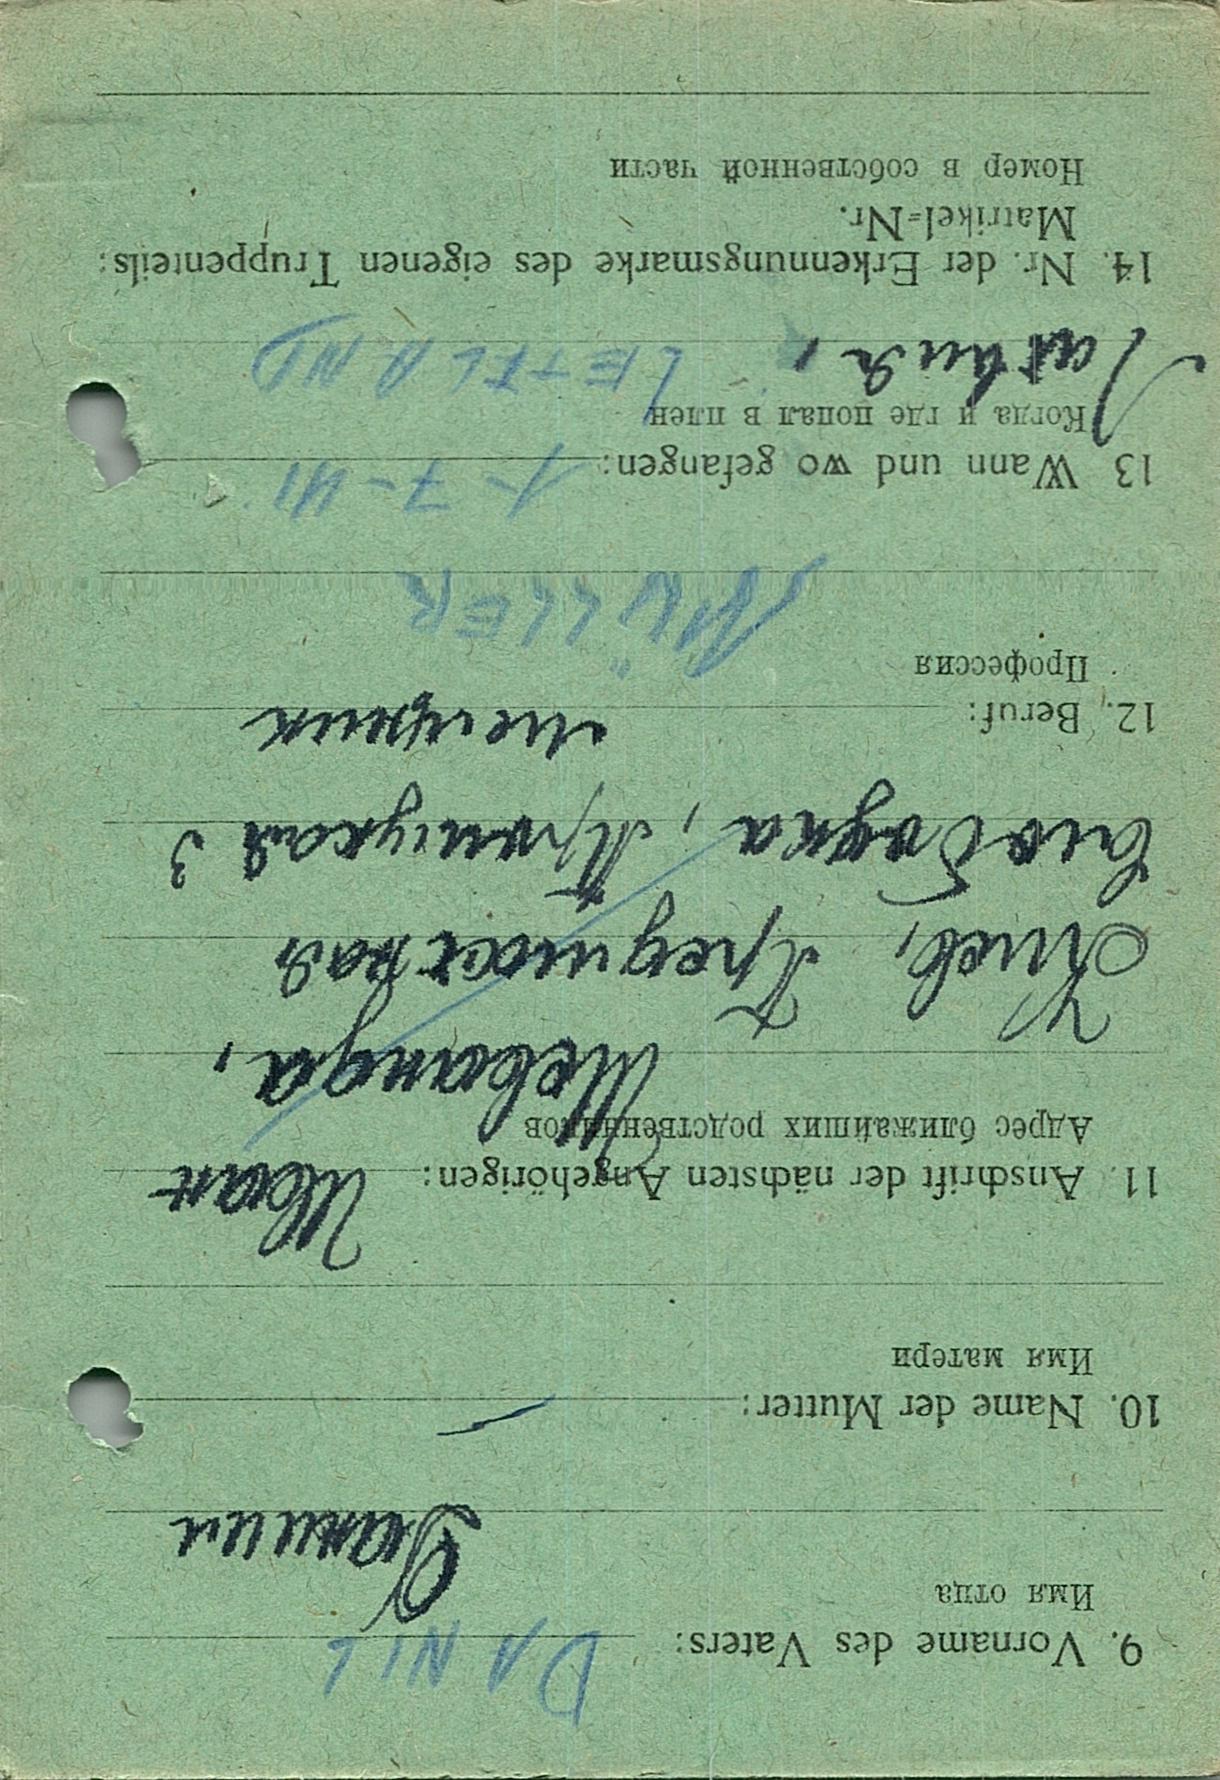 9. Vorname des Vaters: DANIL
Имя отца
Даниил
10. Name der Mutter: —
Имя матери
11. Anschrift der nächsten Angehörigen: Иван
Адрес ближайших родственников
Шеванда,
Киев, Предмостная
слободка, 3
12. Beruf:
Профессия
MÜLLER
13 Wann und wo gefangen: 1-7-41
Когда и где попал в плен
Латвия, LETTLAND
14. Nr. der Erkennungsmarke des eigenen Truppenteils:
Matrikel=Nr.
Номер в собственной части